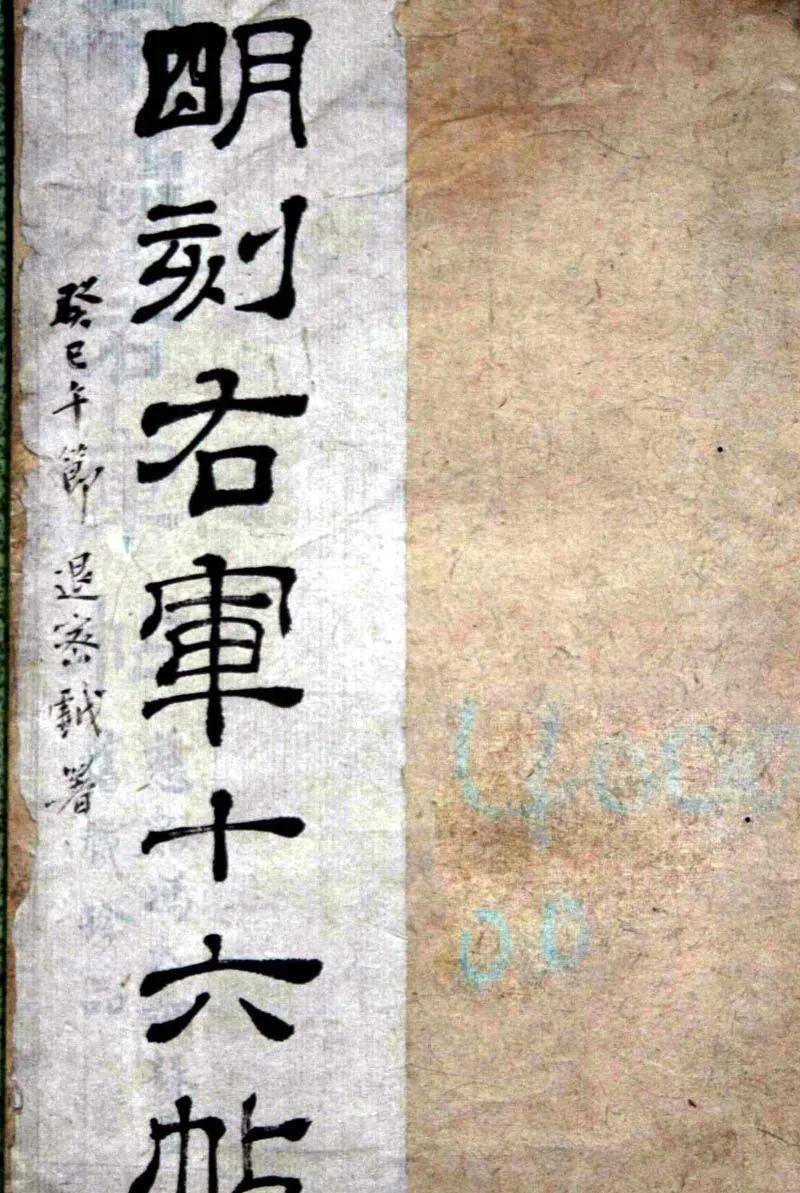 明刻右軍十六帖
癸巳午節退密敬署
4000
00